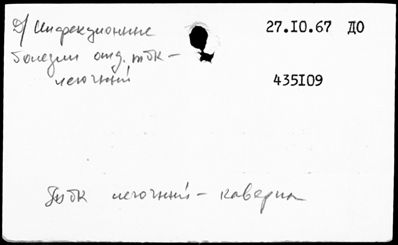 Д/ Инфекционные 27.IO.67 ДО
болезни отд. тбк –
легочный 435IO9
Тбк легочный – каверна